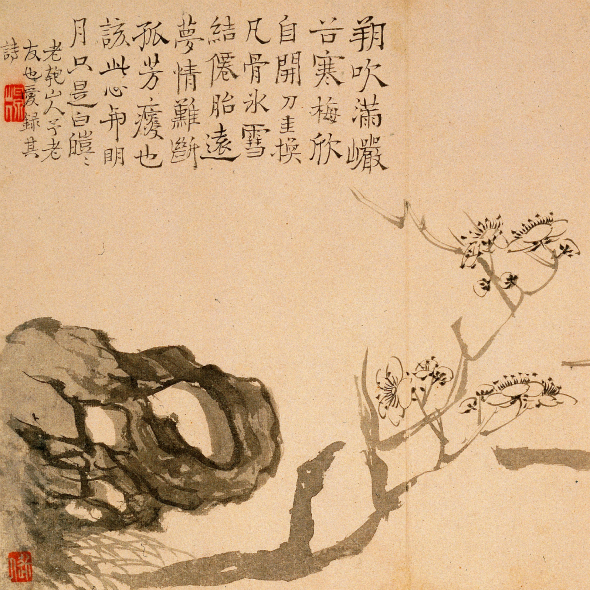 朔吹滿巖
谷寒梅欣
自開刀圭換
凡骨冰雪
結僊胎遠
夢情難斷
孤芳瘦也
該此心明
月只是白皚〻
老匏山人予老
友也爰錄其
詩